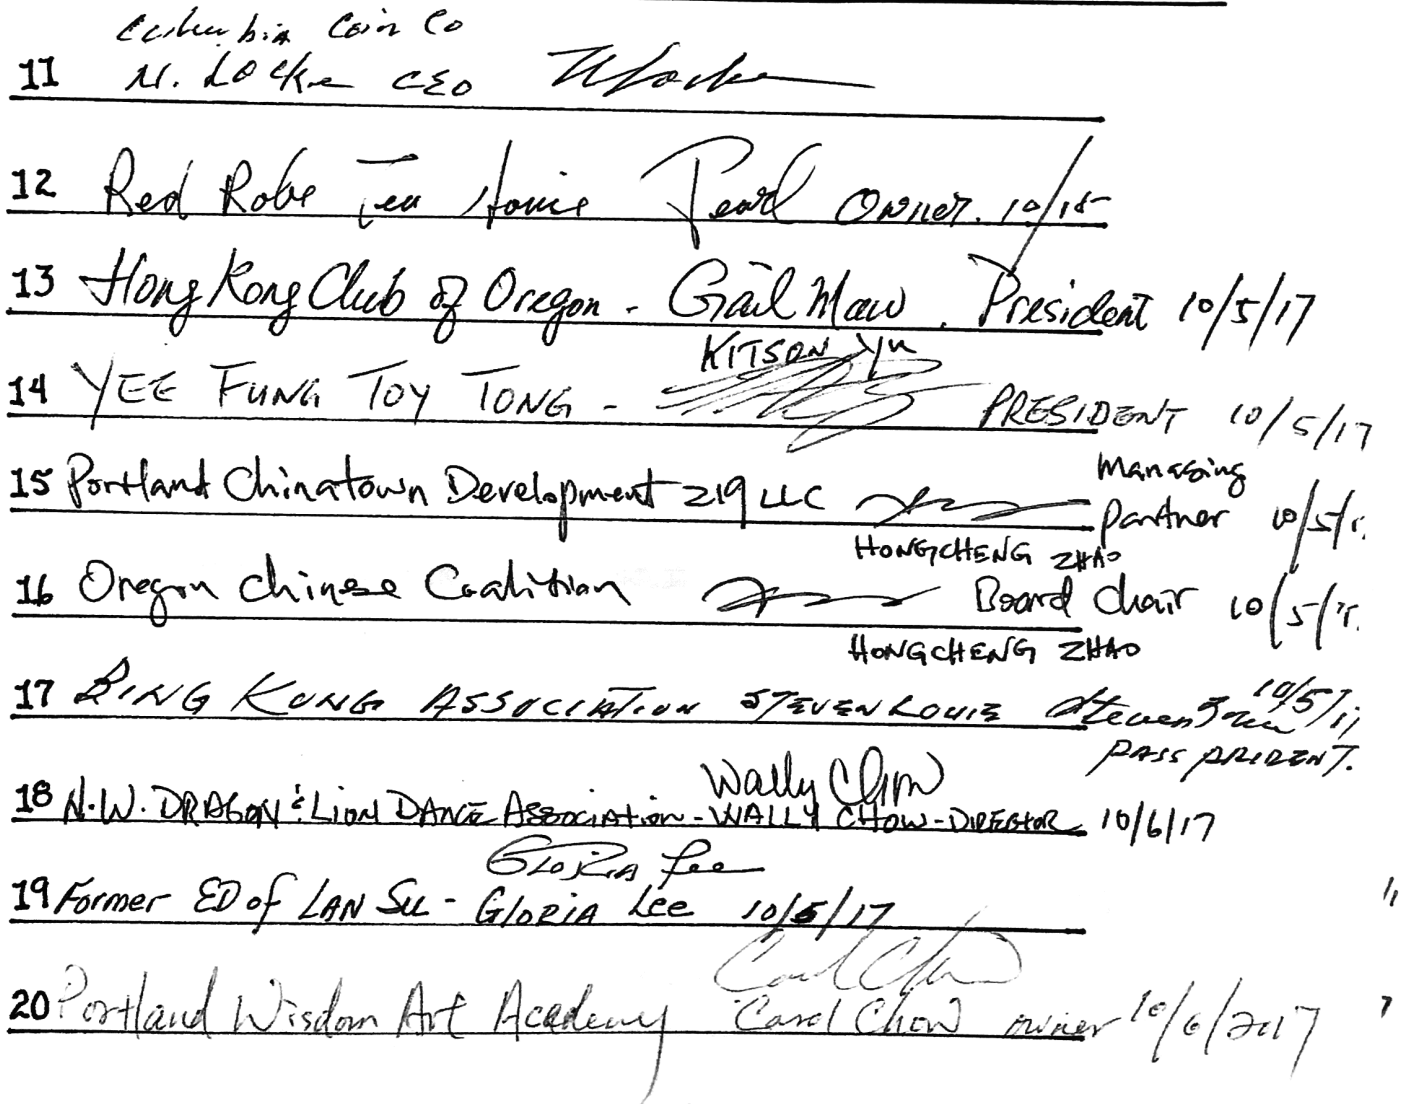 Columbia Coin Co
11 N. Locke CEO NLocke
12 Red Robe Tea House Pearl Owner. 10/15
13 Hong Kong Club of Oregon - Gail Maw, President 10/5/17
KITSON YU
14 YEE FUNG TOY TONG - PRESIDENT 10/5/17
15 Portland Chinatown Development 219 LLC Managing partner 10/5/17
HONGCHENG ZHAO
16 Oregon Chinese Coalition Board Chair 10/5/17.
HONGCHENG ZHAO
17 BING KUNG ASSOCIATION STEVEN LOUIE Steven Louie 10/5/17
PASS PRIDENT.
Wally Chow
18 N.W. DRAGON & LION DANCE ASSOCIATION - WALLY CHOW - DIRECTOR 10/6/17
GLORIA Lee
19 Former ED of LAN SU - GLORIA Lee 10/5/17
Carol Chow
20 Portland Wisdom Art Academy Carol Chow owner 10/6/2017